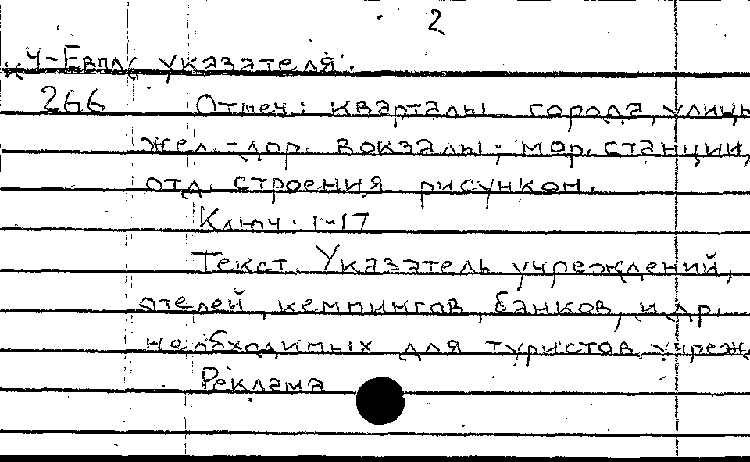 2
К Ч-Евпл указателя.
266 Отмеч.: кварталы города, улицы
жел.-дор. вокзалы, мор. станции,
отд. строения рисунком.
Ключ: 1-17
Текст. Указатель учреждений,
отелей, кемпингов, банков, и др.
необходимых для туристов учреж
Реклама